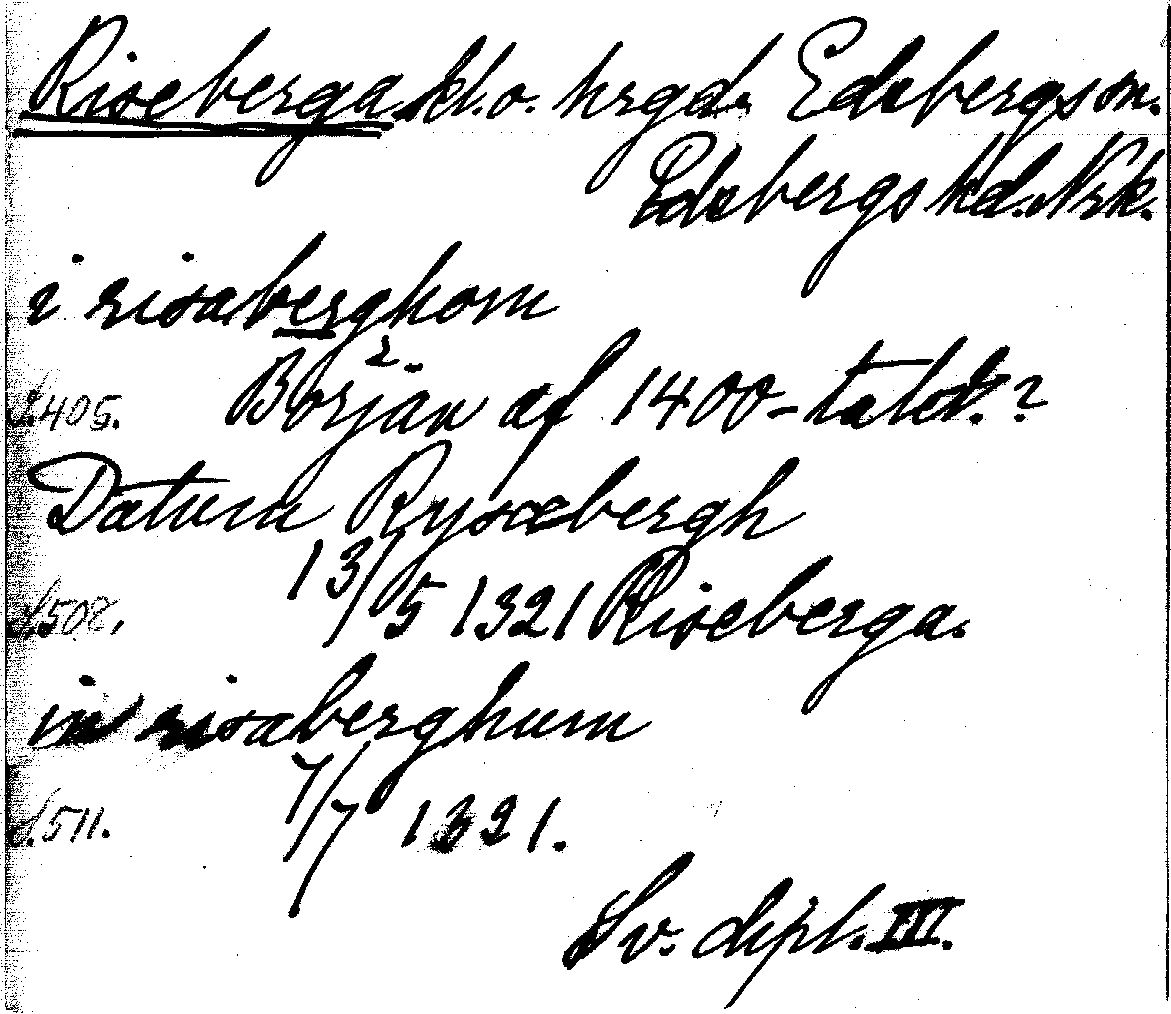 Riseberga kl. o. hrgd. Edsbergs sn.
Edsbergs hd. Nrk.
i risaberghom
S. 405. Början af 1400-talet.?
Datum Rysæbergh
S. 508. 13/5 1321 Riseberga.
in risaberghum
S. 511. 7/7 1321.
Sv. dipl. III.